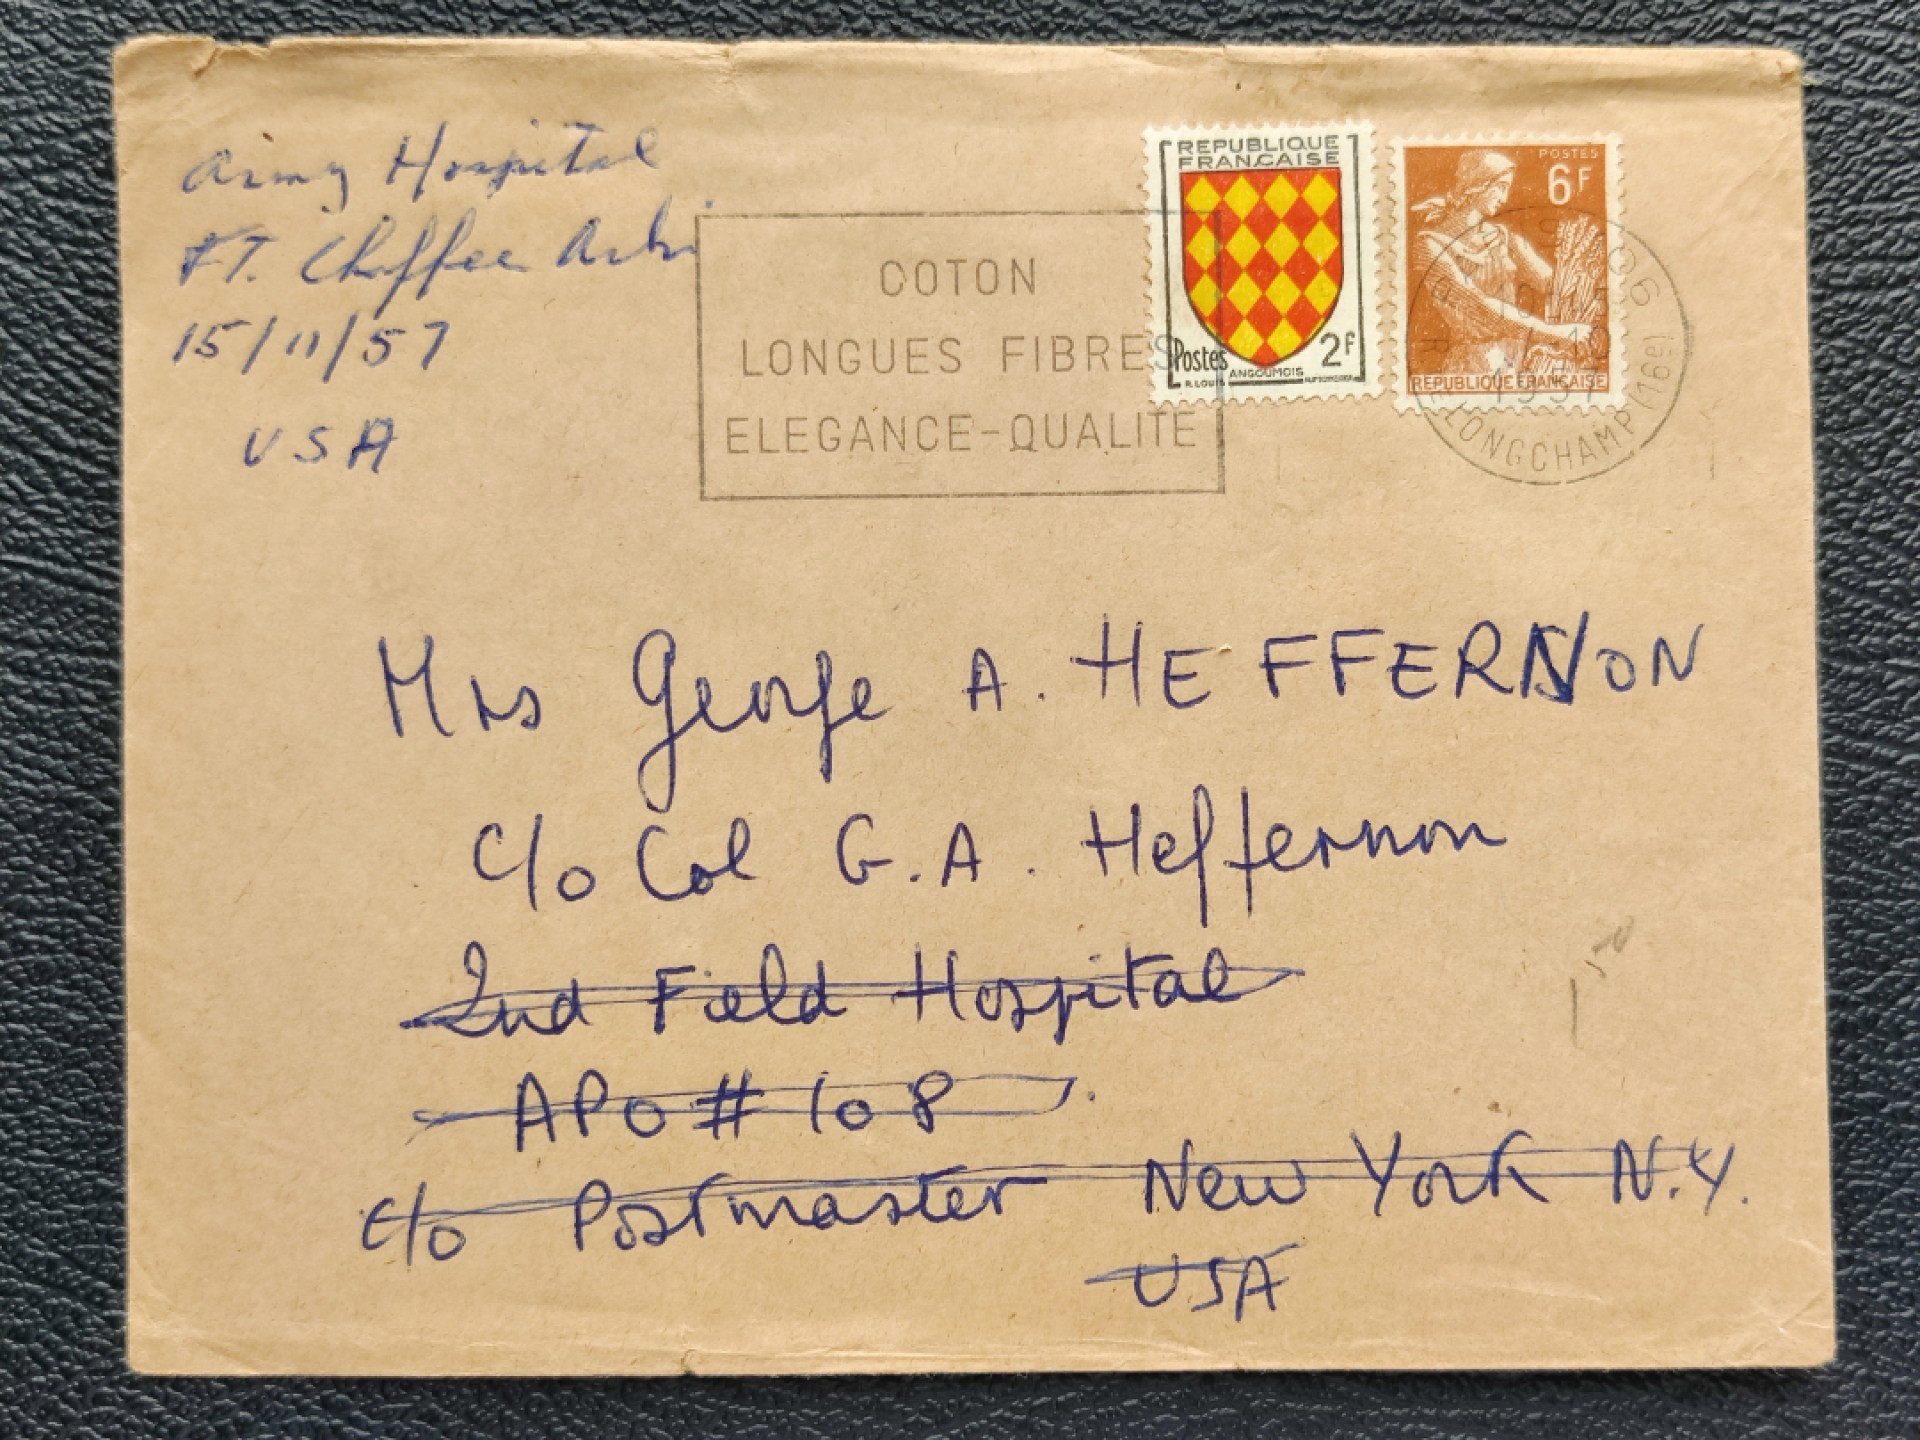 Army Hospital
FT. Chaffee
15/11/57
USA
COTON
LONGUES FIBRES
ELEGANCE-QUALITE
REPUBLIQUE
FRANÇAISE
Postes 2F
R. LOUIS ANGOUMOIS
POSTES
6F
REPUBLIQUE FRANÇAISE
1957
LONGCHAMP (16e)
Mrs George A. HEFFERNON
c/o Col G.A. Heffernon
2nd Field Hospital
APO # 108.
c/o Postmaster New York N.Y.
USA